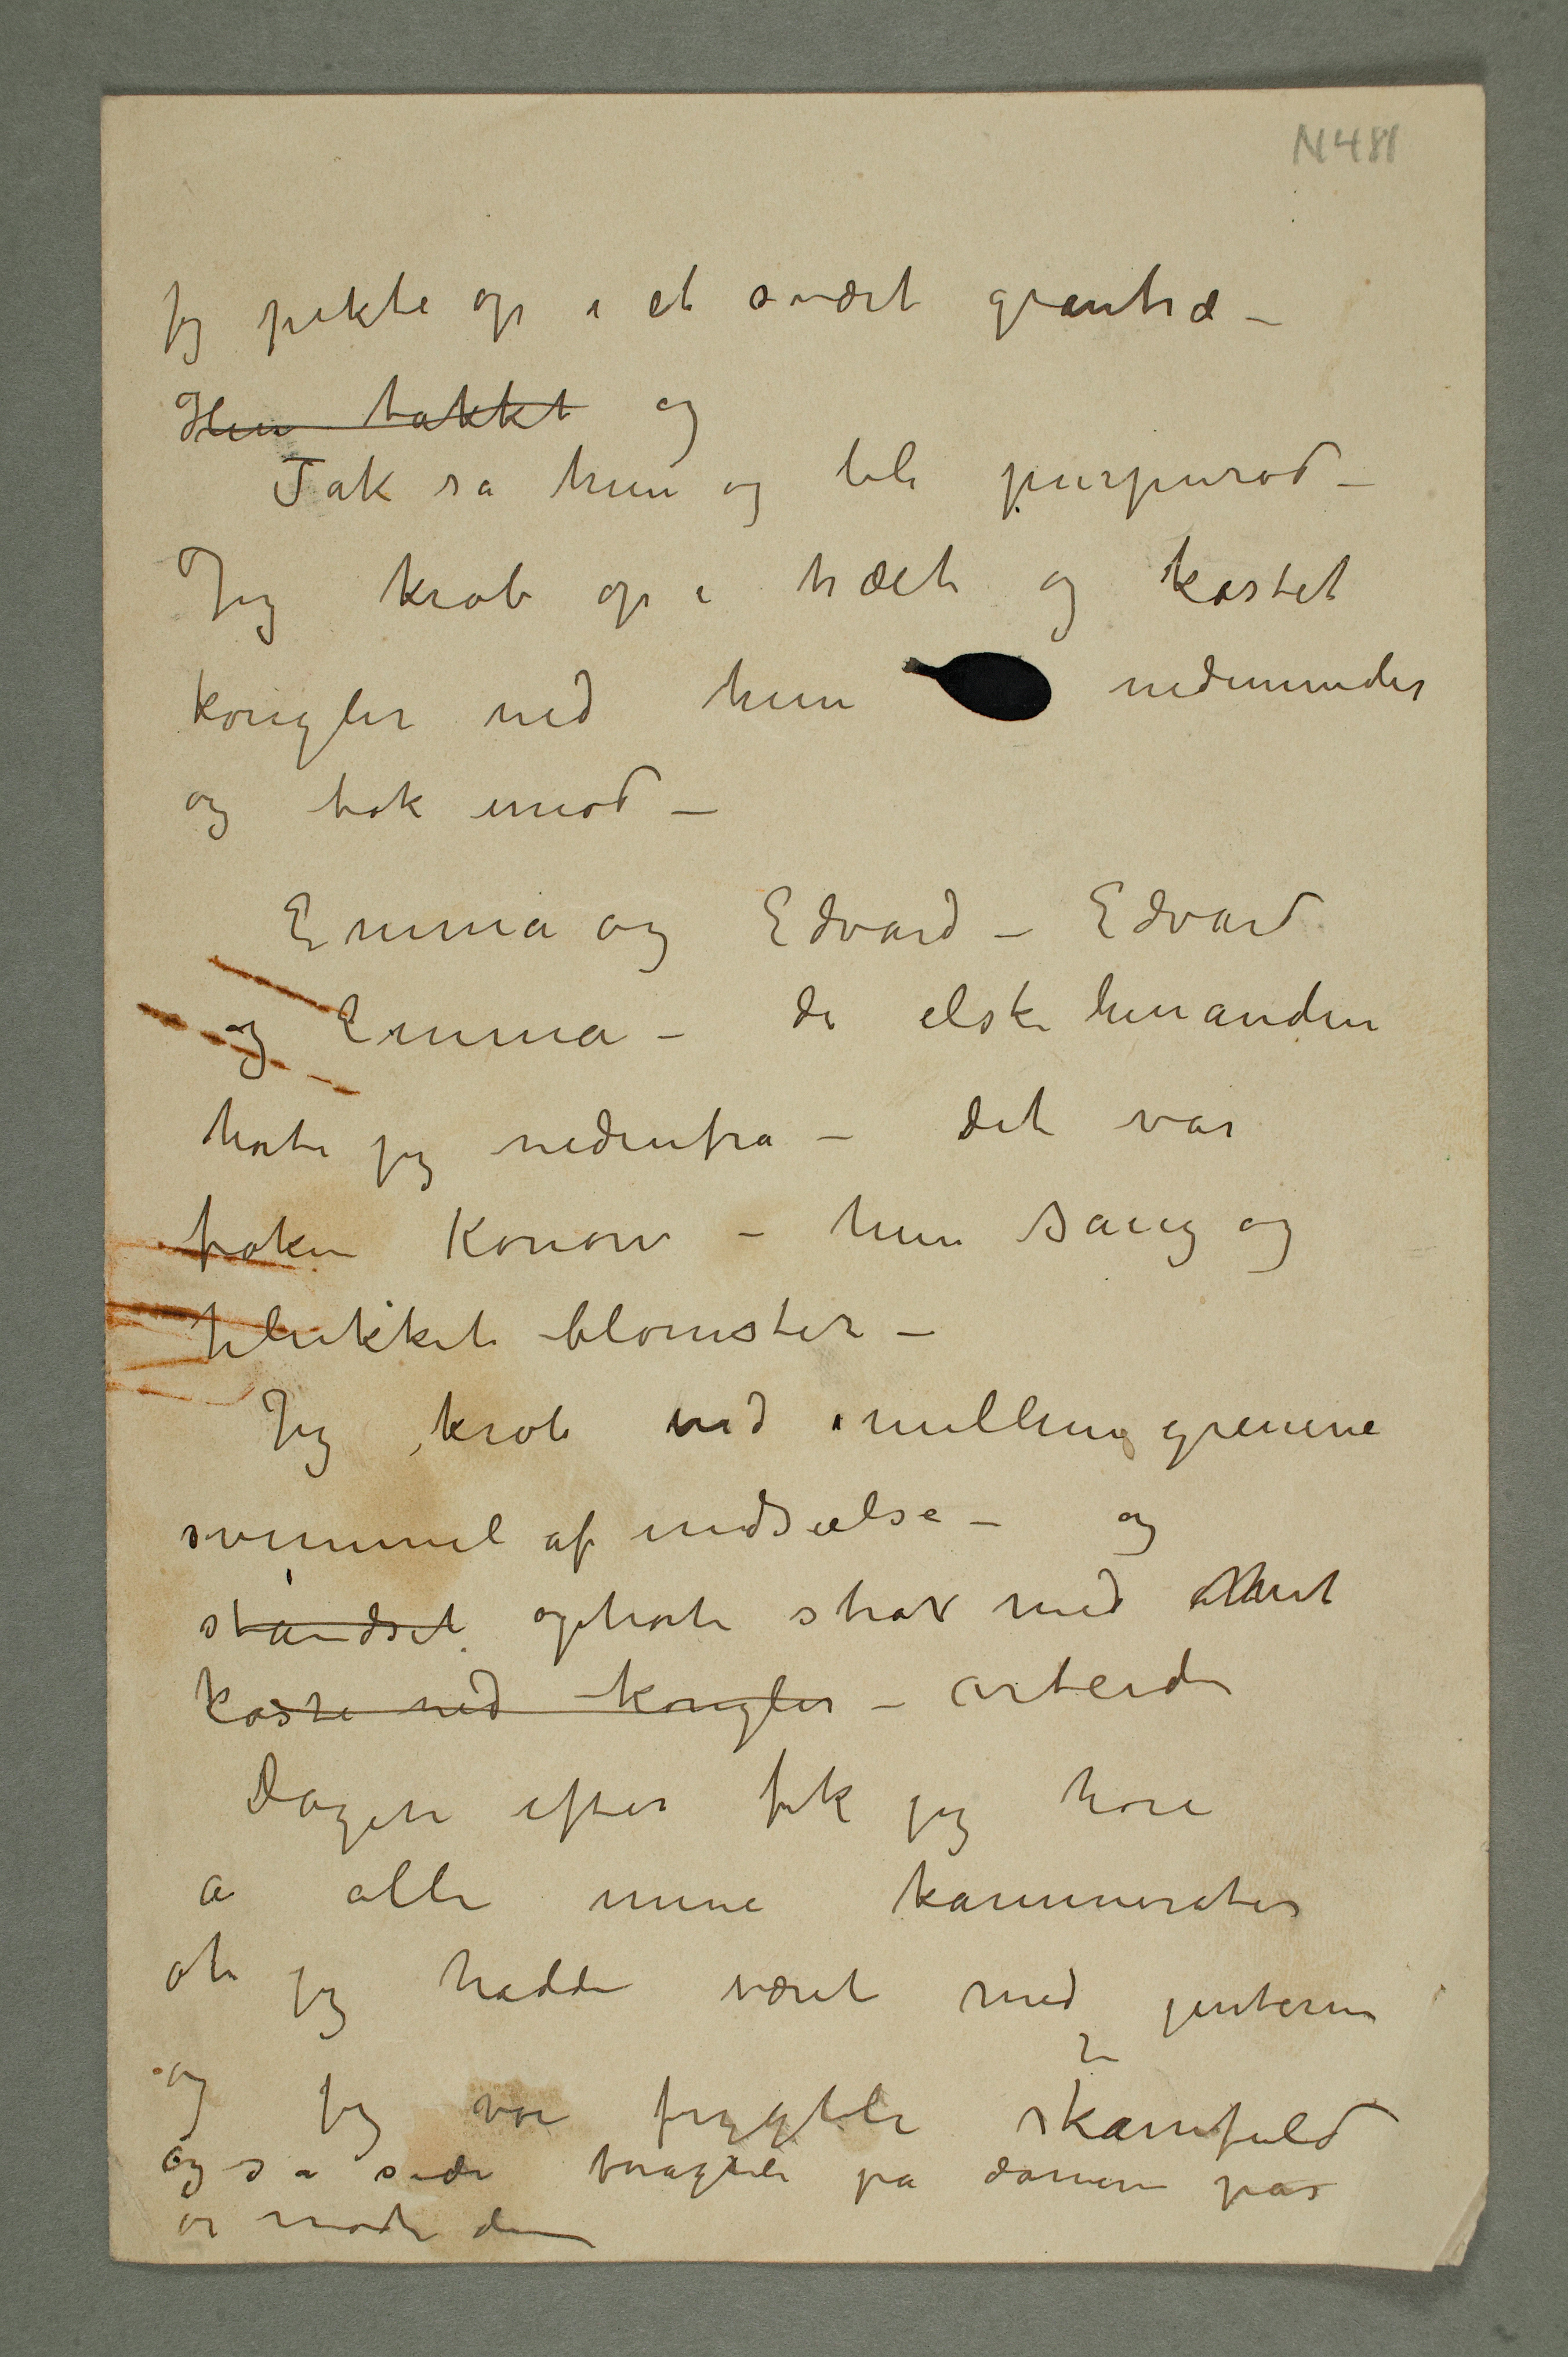 N 481
jeg pekte op i et svært grantræ –
Hun takket og
Tak sa hun og ble purpurød –
Jeg krøb op i træet og kastet
kongler ned hun nedenunder
og tok imod –
Emma og Edvard – Edvard
og Emma – de elske hinanden
hørte jeg nedenfra – det var
frøken Konow – hun sang og
plukket blomster –
Jeg krøb ned imellem grenene
svimmel af undseelse – og
standset ophørte strax med
kaste ned kongler – arbeide
Dagen efter fik jeg høre
a alle mine kammerater
at jeg hadde været med jenterne
og jeg var frygteli skamfuld
og så side foragteli på damene